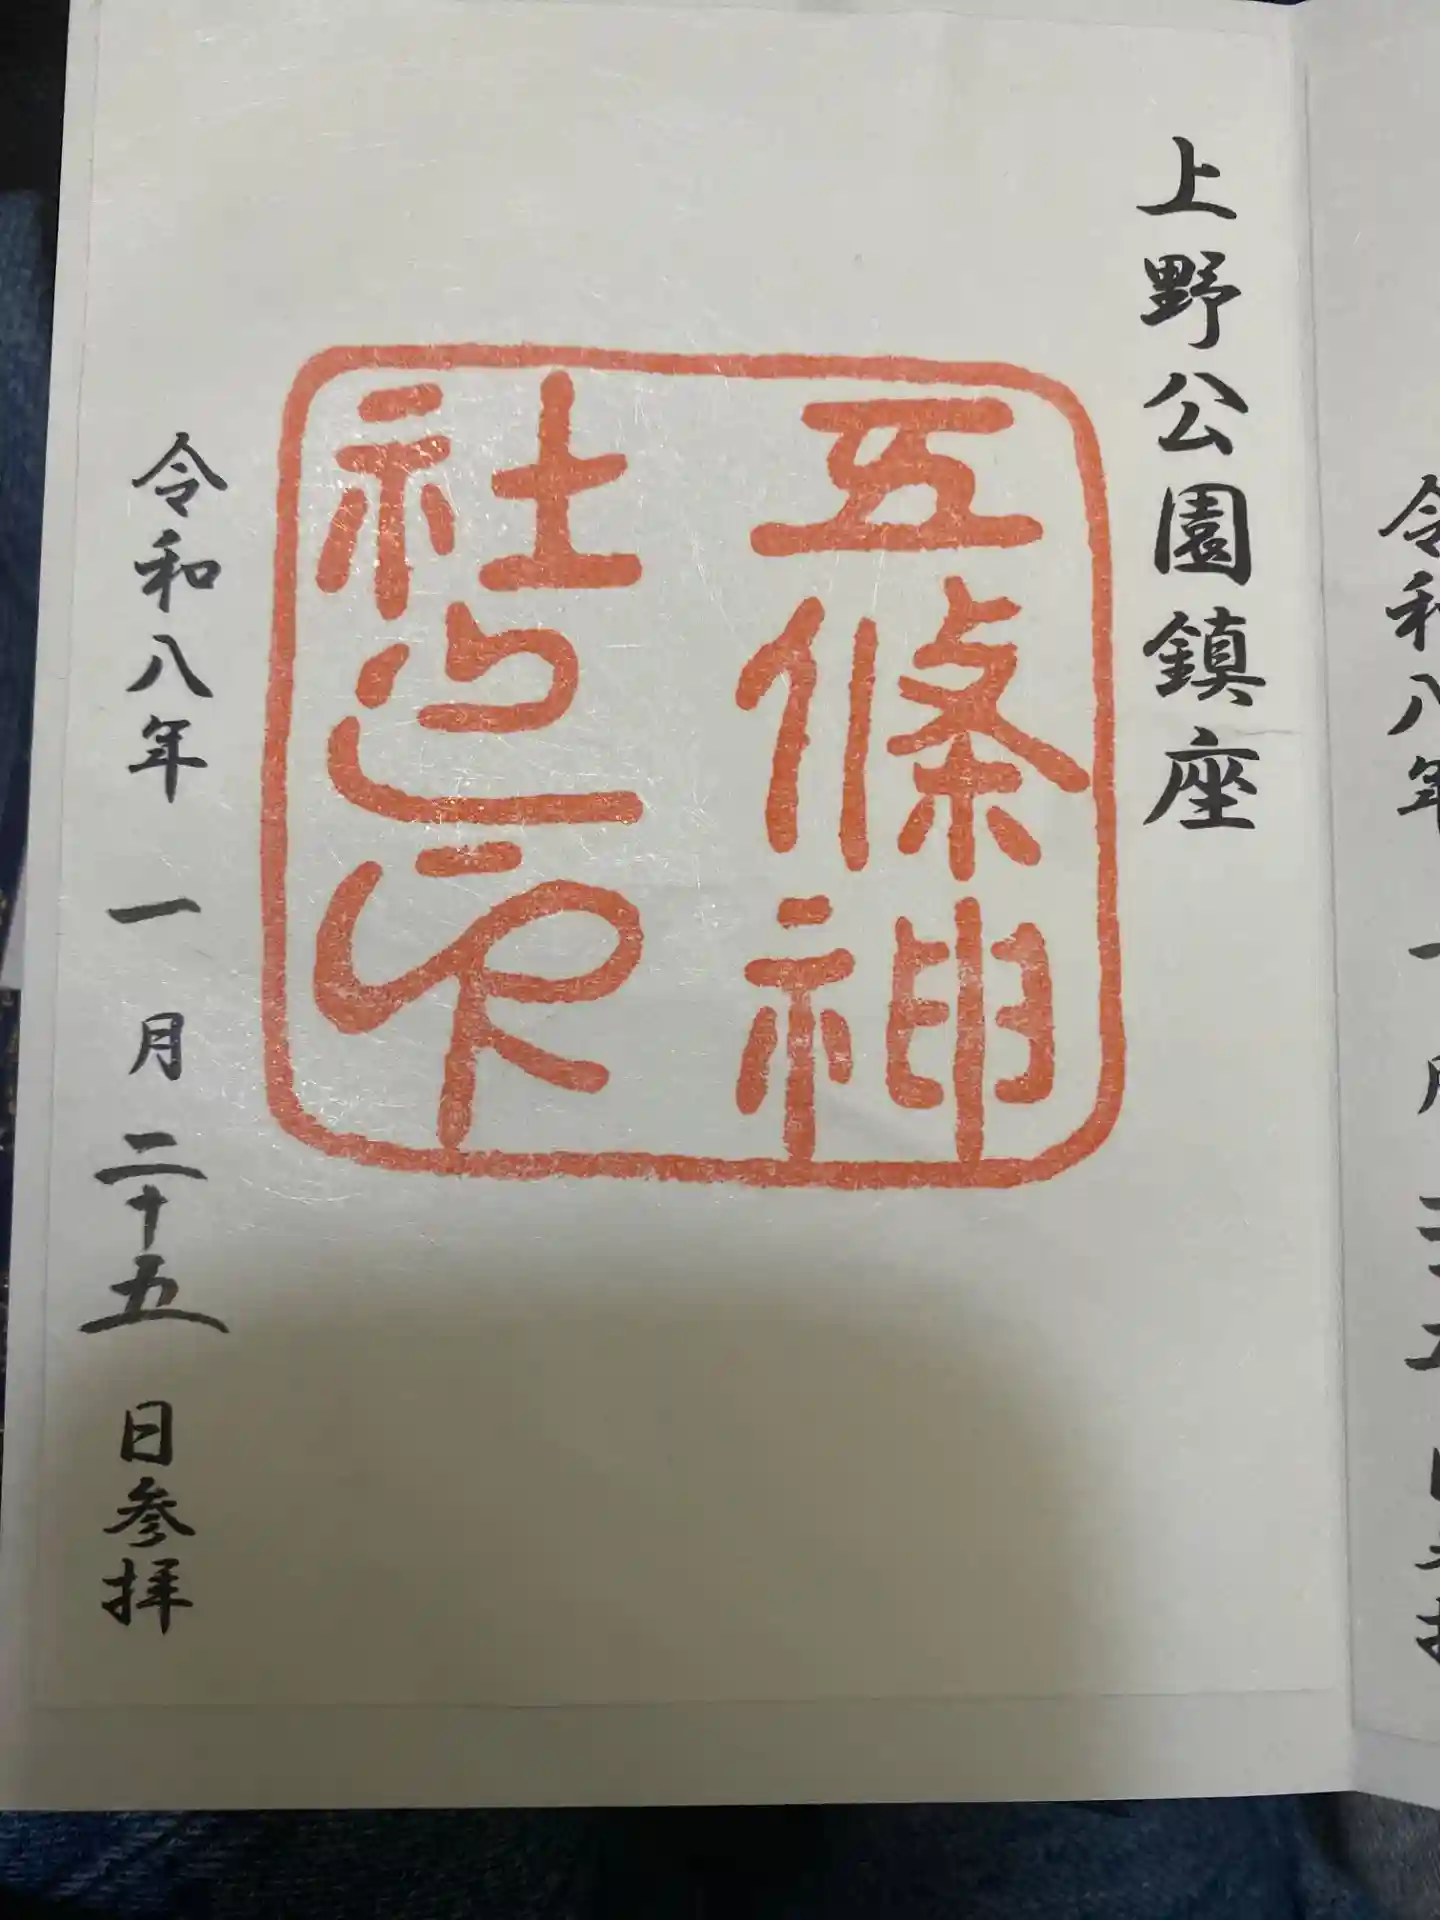 上野公園鎮座
五條神
社之印
令和八年 一月二十五日参拝